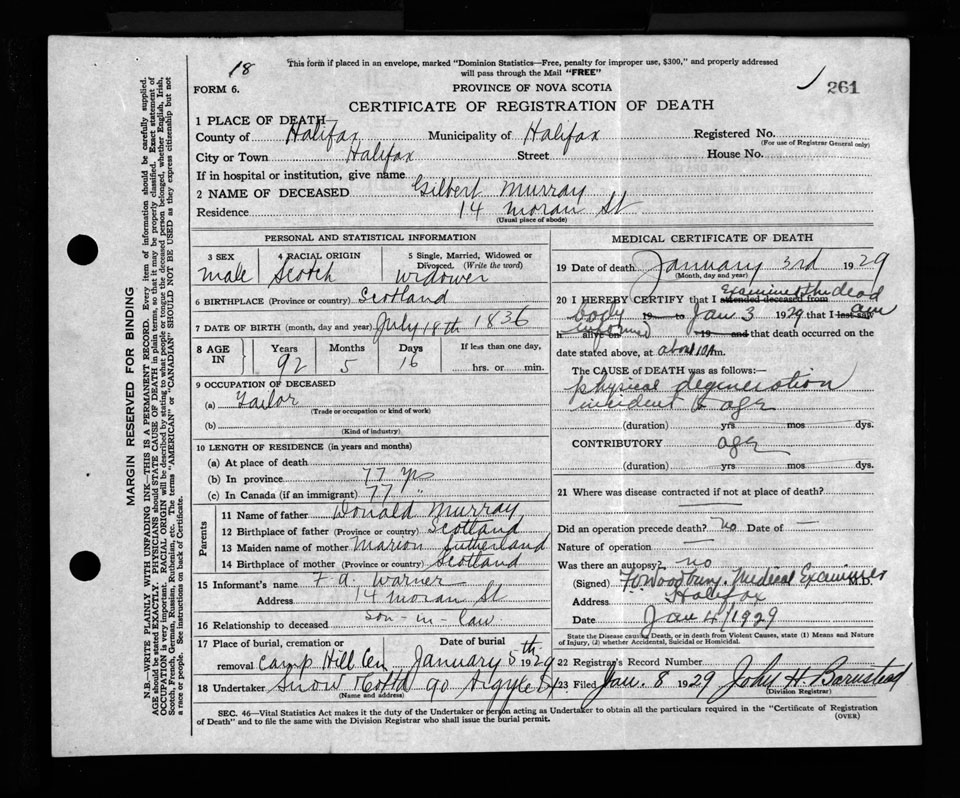 18
This form if placed in an envelope, marked "Dominion Statistics—Free, penalty for improper use, $300," and properly addressed
will pass through the Mail "FREE"
261
FORM 6.
PROVINCE OF NOVA SCOTIA
CERTIFICATE OF REGISTRATION OF DEATH
1 PLACE OF DEATH
County of Halifax Municipality of Halifax Registered No.
(For use of Registrar General only)
City or Town Halifax Street House No.
If in hospital or institution, give name
2 NAME OF DECEASED Gilbert Murray
Residence 14 Moran St
(Usual place of abode)
PERSONAL AND STATISTICAL INFORMATION
3 SEX 4 RACIAL ORIGIN 5 Single, Married, Widowed or
Divorced, (Write the word)
Male Scotch Widower
6 BIRTHPLACE (Province or country) Scotland
7 DATE OF BIRTH (month, day and year) July 18th 1836
8 AGE IN Years Months Days If less than one day,
92 5 16 hrs. or min.
9 OCCUPATION OF DECEASED
(a) Tailor
(Trade or occupation or kind of work)
(b)
(Kind of industry)
10 LENGTH OF RESIDENCE (in years and months)
(a) At place of death
(b) In province 77 yrs
(c) In Canada (if an immigrant) 77 "
Parents
11 Name of father Donald Murray
12 Birthplace of father (Province or country) Scotland
13 Maiden name of mother Marion Sutherland
14 Birthplace of mother (Province or country) Scotland
15 Informant's name F. A. Warner
Address 14 Moran St
16 Relationship to deceased son-in-law
17 Place of burial, cremation or Date of burial
removal Camp Hill Cem January 5th 1929
18 Undertaker Snow 90 Argyle St.
(Name and address)
MEDICAL CERTIFICATE OF DEATH
19 Date of death January 3rd 1929
(Month, day and year)
20 I HEREBY CERTIFY that I attended deceased from Examined the dead
body 19 to Jan 3 1929 that I last saw am
h alive on informed 19 and that death occurred on the
date stated above, at about 10 A m.
The CAUSE of DEATH was as follows:—
Physical degeneration
incident to age
(duration) yrs mos dys.
CONTRIBUTORY age
(duration) yrs mos dys.
21 Where was disease contracted if not at place of death?
Did an operation precede death? No Date of —
Nature of operation —
Was there an autopsy? no
(Signed) Woodbury. Medical Examiner
Address Halifax
Date Jan 4/1929
State the Disease causing Death, or in death from Violent Causes, state (1) Means and Nature
of Injury, (2) whether Accidental, Suicidal or Homicidal.
22 Registrar's Record Number
23 Filed Jan. 8 1929 John H Barnstead
(Division Registrar)
SEC. 46—Vital Statistics Act makes it the duty of the Undertaker or person acting as Undertaker to obtain all the particulars required in the "Certificate of Registration
of Death" and to file the same with the Division Registrar who shall issue the burial permit.
(OVER)
MARGIN RESERVED FOR BINDING
N.B.—WRITE PLAINLY WITH UNFADING INK—THIS IS A PERMANENT RECORD. Every item of information should be carefully supplied.
AGE should be stated EXACTLY. PHYSICIANS should STATE CAUSE OF DEATH in plain terms, so that it may be properly classified. Exact statement of
OCCUPATION is very important. RACIAL ORIGIN will be described by stating to what people or tongue the deceased person belonged, whether English, Irish,
Scotch, French, German, Russian, Ruthenian, etc. The terms "AMERICAN" or "CANADIAN" SHOULD NOT BE USED as they express citizenship but not
a race or people. See instructions on back of Certificate.